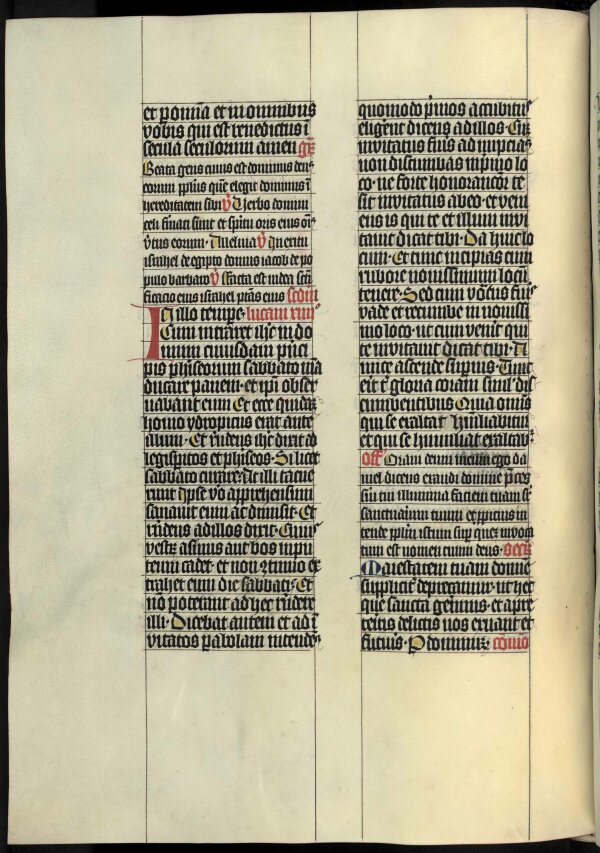 et p omnia et in omnibus
vobis qui est benedictus ī
secula seculorum amen gr̄
Beata gens cuius est dominus deꝰ
eorum pplus quē elegit dominus ī
hereditatem sibi v̄ Verbo domini
celi firmati sunt et spiritu oris eius oīs
v̓tus eorum · Alleluia v̄ In exitu
israhel de egipto domus iacob de po
pulo barbaro v̄ facta est iudea sc̄ti
ficacio eius israhel ptās eius
In illo tempe · lucam xiiii
Cum intraret ihc in do
mum cuiusdam p̓nci
pis phiseorum sabbato mā
ducare panem · et ipi obser
uabant eum Et ecce quidā
homo ydropicus erat ante
illum · Et r̄ndens ihc dixit ad
legispitos et phiseos · Si licet
sabbato curare · At illi tacue
runt Ipse v̊o apprehensum
sanauit eum ac dimisit · Et
r̄ndens ad illos dixit · Cuiꝰ
vestrū asinus aut bos in pu
teum cadet · et non ꝯtinuo ex
trahet eum die sabbati · Et
nō poterant ad hec r̄ndere
illi · Dicebat autem et ad ī
vitatos pabolam intendēs
quomodo p̓mos accubitus
eligerent dicens ad illos · Cū
invitatus fuis ad nupcias
non discumbas in primo lo
co · ne forte honoracior te
sit invitatus ab eo · et veni
ens is qui te et illum invi
tauit dicat tibi · Da huic lo
cum · Et tunc incipias cum
rubore nouissimum locū
tenere · Sed cum vocatus fuis
vade et recumbe in nouissi
mo loco · ut cum venit qui
te invitauit dicat tibi · A
mice ascende supius · Tunc
erit t̄ gloria coram simul dis
cumbentibus Quia omnis
qui se exaltat humiliabitur
et qui se humiliat exaltabr̄
off Oraui deum meum ego da
niel dicens exaudi domine p̄ces
serui tui illumina faciem tuam sr̄
sanctuarium tuum et ꝓpicius in
tende pplm istum sup quem invoca
tum est nomen tuum deus · Secr̄
Maiestatem tuam domine
supplicit̓ deprecamur · ut hec
que sancta gerimus · et a pre
teritis delictis nos exuant et
futuris · P dominum cōmo